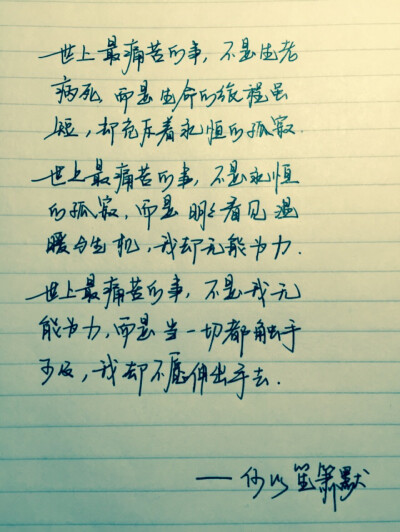 世上最痛苦的事，不是生老
病死，而是生命的旅程虽
短，却充斥着永恒的孤寂.
世上最痛苦的事，不是永恒
的孤寂，而是明々看见温
暖与生机，我却无能为力.
世上最痛苦的事，不是我无
能为力，而是当一切都触手
可及，我却不愿伸出手去.
——何以笙箫默